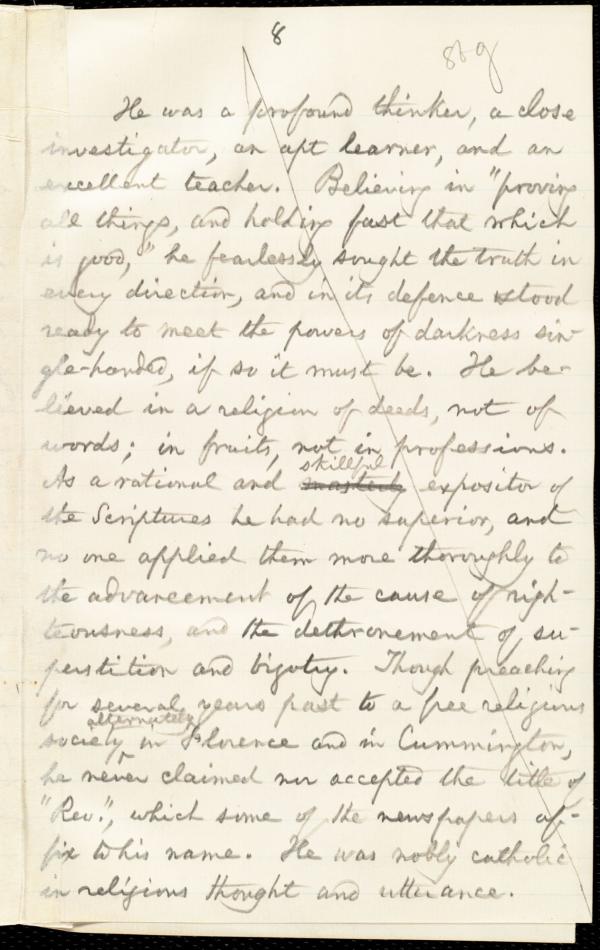 8
869
He was a profound thinker, a close
investigator, an apt learner, and an
excellent teacher. Believing in "proving
all things, and holding fast that which
is good," he fearlessly sought the truth in
every direction, and in its defence stood
ready to meet the powers of darkness sin-
gle-handed, if so it must be. He be-
lieved in a religion of deeds, not of
words; in fruits, not in professions.
skillful
As a rational and masterly expositor of
the Scriptures he had no superior, and
no one applied them more thoroughly to
the advancement of the cause of righ-
teousness, and the dethronement of su-
perstition and bigotry. Though preaching
for several years past to a free religious
alternately
society in Florence and in Cummington,
he never claimed nor accepted the title of
"Rev.", which some of the newspapers af-
fix to his name. He was nobly catholic
in religious thought and utterance.